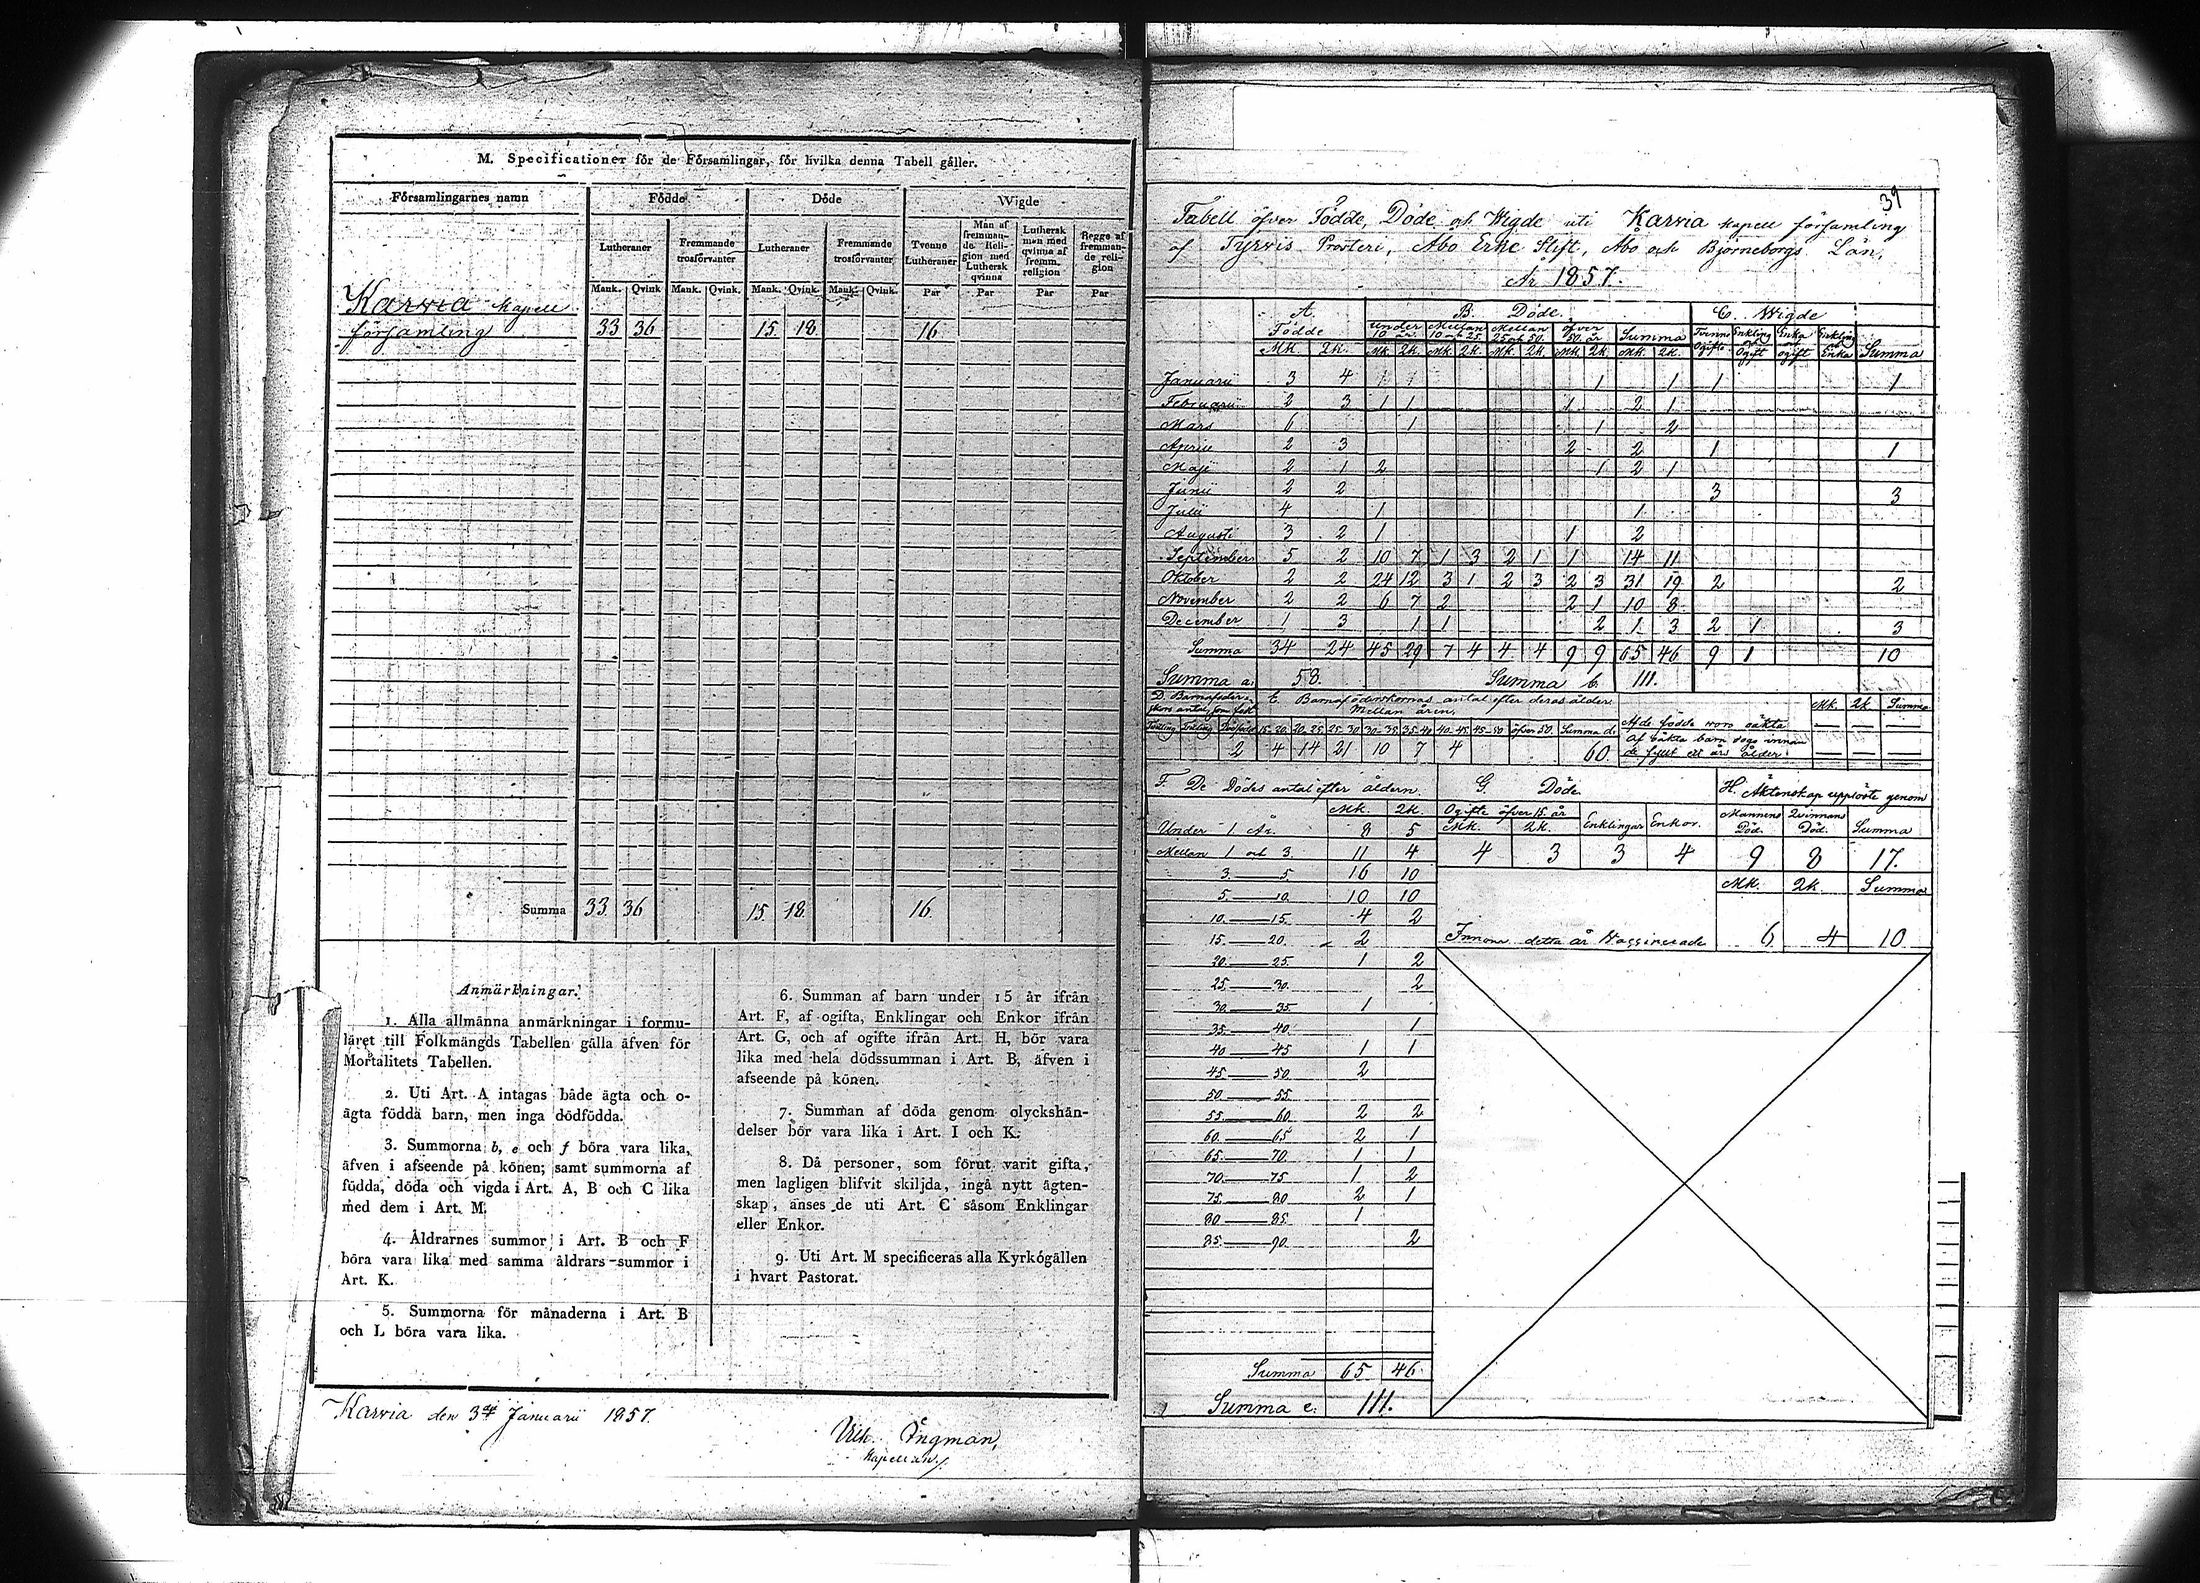 M. Specificationer för de Församlingar, för hvilka denna Tabell gäller.
Församlingarnes namn
Födde
Döde
Wigde
Lutheraner
Fremmande trosförvanter
Lutheraner
Fremmande trosförvanter
Tvenne Lutheraner
Män af fremmande Religion med Luthersk qvinna
Luthersk man med qvinna af fremm. religion
Begge af fremmande religion
Mank. Qvink. Mank. Qvink. Mank. Qvink. Mank. Qvink. Par Par Par Par
Karvia Kapell
församling 33 36 15 18 16
Summa 33 36 15 18 16
Anmärkningar.
1. Alla allmänna anmärkningar i formu-
läret till Folkmängds Tabellen gälla äfven för
Mortalitets Tabellen.
2. Uti Art. A intagas både ägta och o-
ägta födda barn, men inga dödfödda.
3. Summorna b, e och f böra vara lika,
äfven i afseende på könen; samt summorna af
födda, döda och vigda i Art. A, B och C lika
med dem i Art. M.
4. Åldrarnes summor i Art. B och F
böra vara lika med samma åldrars-summor i
Art. K.
5. Summorna för månaderna i Art. B
och L böra vara lika.
6. Summan af barn under 15 år ifrån
Art. F, af ogifta, Enklingar och Enkor ifrån
Art. G, och af ogifte ifrån Art. H, bör vara
lika med hela dödssumman i Art. B, äfven i
afseende på könen.
7. Summan af döda genom olyckshän-
delser bör vara lika i Art. I och K.
8. Då personer, som förut varit gifta,
men lagligen blifvit skiljda, ingå nytt ägten-
skap, anses de uti Art. C såsom Enklingar
eller Enkor.
9. Uti Art. M specificeras alla Kyrkogällen
i hvart Pastorat.
Karvia den 3dje Januarii 1857.
Vilh. Ingman,
Kapellan.
39
Tabell öfver Födde, Döde och Wigde uti Karvia Kapell församling
af Tyrvis Prosteri, Åbo Erke Stift, Åbo och Björneborgs Län,
År 1857.
A. Födde
B. Döde
C. Wigde
Under 10 år Mellan 10 och 25 Mellan 25 och 50 öfver 50 år Summa
Tvenne Ogifte Enkling och Ogift Enka och ogift Enkling och Enka Summa
Mk. Qk. Mk. Qk. Mk. Qk. Mk. Qk. Mk. Qk. Mk. Qk.
Januarii 3 4 1 1 1 1 1 1
Februarii 2 3 1 1 1 2 1
Mars 6 1 1 2
Aprill 2 3 2 2 1 1
Maji 2 1 2 1 2 1
Junii 2 2 3 3
Julii 4 1 1
Augusti 3 2 1 1 2
September 5 2 10 7 1 3 2 1 1 14 11
Oktober 2 2 24 12 3 1 2 3 2 3 31 19 2 2
November 2 2 6 7 2 2 1 10 8
December 1 3 1 1 2 1 3 2 1 3
Summa 34 24 45 29 7 4 4 4 9 9 65 46 9 1 10
Summa a. 58. Summa b. 111.
D. Barnaföderskors antal, som födt
E. Barnaföderskornas antal efter deras ålder
Mellan åren.
Mk. Qk. Summa
Tvilling Trilling Dödfödde 15-20 20-25 25-30 30-35 35-40 40-45 45-50 öfver 50. Summa d.
2 4 14 21 10 7 4 60.
Af de födde voro oäkta
Af oäkta barn dogo innan
de fyllt ett års ålder
F. De Dödes antal efter åldern.
Mk. Qk.
Under 1 År. 8 5
Mellan 1 och 3. 11 4
3. — 5. 16 10
5. — 10. 10 10
10. — 15. 4 2
15. — 20. 2
20. — 25. 1 2
25. — 30. 2
30. — 35. 1
35. — 40. 1
40 — 45 1 1
45. — 50. 2
50. — 55.
55. — 60. 2 2
60. — 65 2 1
65. — 70. 1 1
70. — 75 1 2
75. — 80 2 1
80 — 85. 1
85. — 90. 2
Summa 65 46
Summa e. 111.
G. Döde
Ogifte öfver 15 år Enklingar Enkor.
Mk. Qk.
4 3 3 4
H. Äktenskap upplöste genom
Mannens Död. Qvinnans Död. Summa
9 8 17.
Mk. Qk. Summa
Innom detta år Vaccinerade 6 4 10